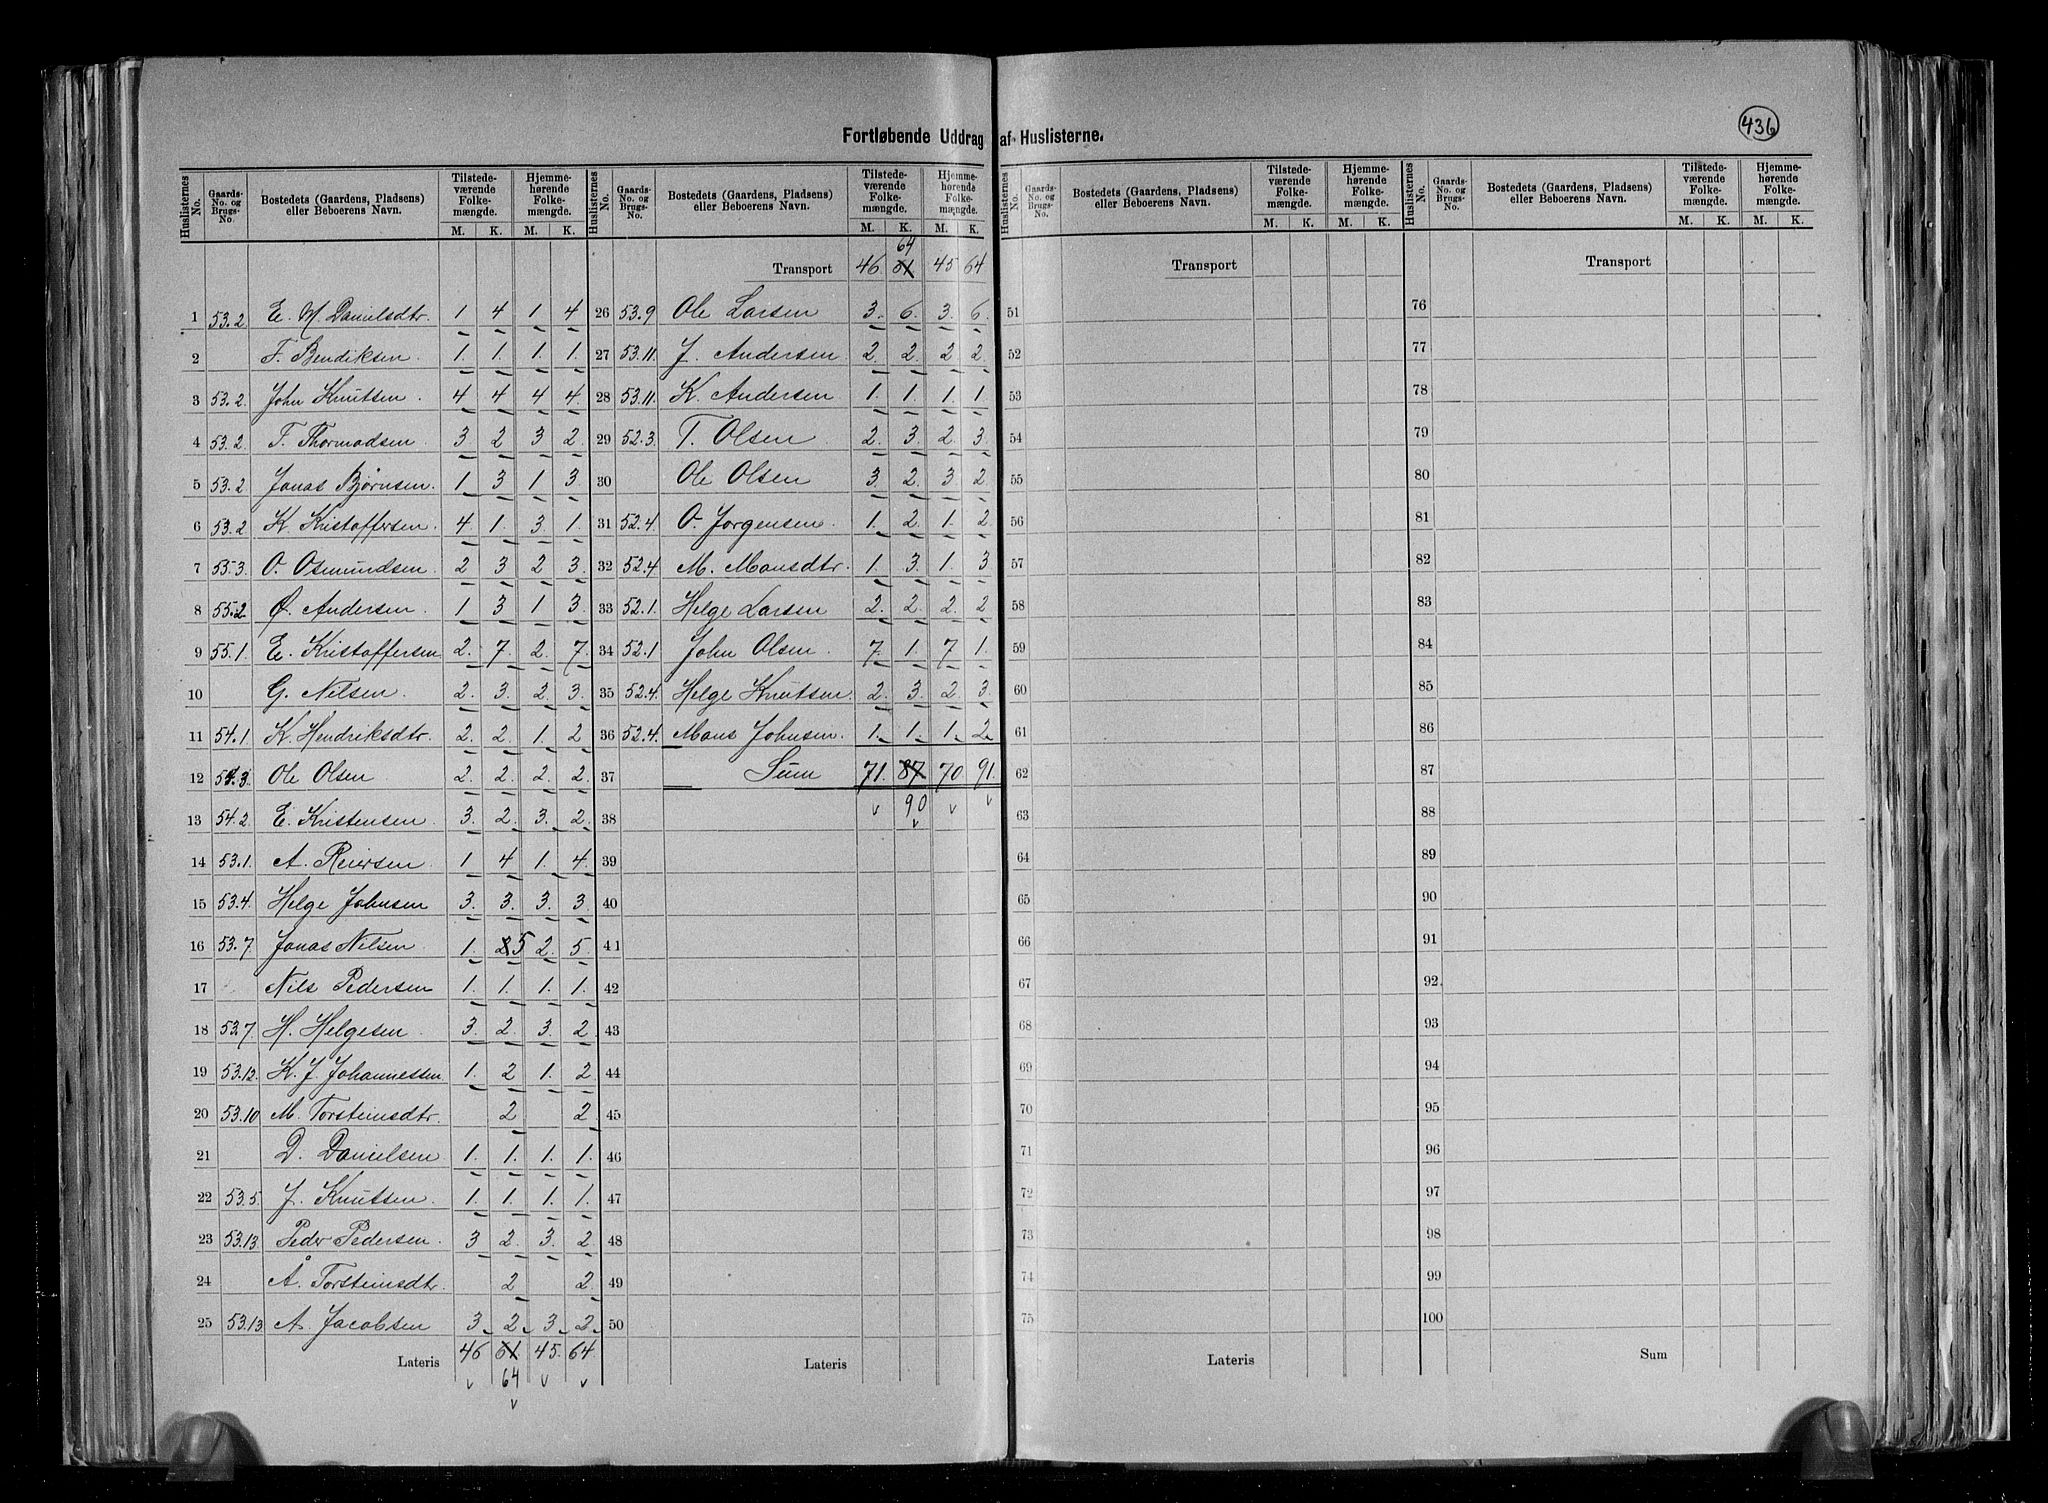 436
Fortløbende Uddrag af Huslisterne.
Huslisternes No. | Gaards-No. og Brugs-No. | Bostedets (Gaardens, Pladsens) eller Beboerens Navn. | Tilstedeværende Folkemængde. M. K. | Hjemmehørende Folkemængde. M. K.
1 53.2 E. M. Danielsdtr. 1 4 1 4
2 F. Bendiksen. 1. 1. 1. 1.
3 53.2. John Knutsen. 4 4 4 4.
4 53.2 T. Thormodsen. 3 2 3 2.
5 53.2 Jonas Bjørnsen. 1 3 1 3.
6 53.2 K. Kristoffersen. 4 1. 3. 1.
7 55.3. O. Osmundsen. 2 3 2 3.
8 55.2 Ø. Andersen. 1 3 1 3.
9 55.1. E. Kristoffersen 2. 7. 2. 7.
10 G. Nilsen. 2. 3. 2. 3.
11 54.1. K. Hendriksdtr. 2. 2. 1. 2
12 54.3. Ole Olsen 2. 2. 2. 2.
13 54.2 E. Kristensen. 3. 2. 3. 2.
14 53.1. A. Reiersen. 1 4 1. 4.
15 53.4. Helge Johnsen 3. 3. 3. 3.
16 53.7. Jonas Nilsen 1. 5 2. 5.
17 Nils Pedersen 1. 1. 1. 1.
18 53.7 H. Helgesen. 3. 2. 3. 2.
19 53.12. K. J. Johannessen. 1. 2 1. 2
20 53.10 M. Torsteinsdtr. 2 2.
21 D. Danielsen 1. 1. 1. 1.
22 53.5. J. Knutsen. 1. 1. 1. 1.
23 53.13. Peder Pedersen. 3 2. 3. 2.
24 Å. Torsteinsdtr. 2 2.
25 53.13 A. Jacobsen 3. 2. 3. 2.
Lateris 46 61 45. 64.
64
Huslisternes No. | Gaards-No. og Brugs-No. | Bostedets (Gaardens, Pladsens) eller Beboerens Navn. | Tilstedeværende Folkemængde. M. K. | Hjemmehørende Folkemængde. M. K.
64
Transport 46 61 45 64
26 53.9 Ole Larsen 3. 6. 3. 6.
27 53.11. J. Andersen 2. 2. 2 2.
28 53.11. K. Andersen 1. 1. 1. 1
29 52.3. T. Olsen 2. 3. 2. 3.
30 Ole Olsen 3. 2. 3. 2
31 52.4. O. Jørgensen 1. 2 1. 2.
32 52.4 M. Monsdtr. 1. 3. 1. 3
33 52.1. Helge Larsen 2. 2. 2. 2
34 52.1 John Olsen 7. 1. 7 1.
35 52.4. Helge Knutsen. 2. 3. 2. 3.
36 52.4. Mons Johnsen. 1. 1. 1. 2
37 Sum 71. 87 70. 91.
38 90
39
40
41
42
43
44
45
46
47
48
49
50
Lateris
Huslisternes No. | Gaards-No. og Brugs-No. | Bostedets (Gaardens, Pladsens) eller Beboerens Navn. | Tilstedeværende Folkemængde. M. K. | Hjemmehørende Folkemængde. M. K.
Transport
51
52
53
54
55
56
57
58
59
60
61
62
63
64
65
66
67
68
69
70
71
72
73
74
75
Lateris
Huslisternes No. | Gaards-No. og Brugs-No. | Bostedets (Gaardens, Pladsens) eller Beboerens Navn. | Tilstedeværende Folkemængde. M. K. | Hjemmehørende Folkemængde. M. K.
Transport
76
77
78
79
80
81
82
83
84
85
86
87
88
89
90
91
92.
93
94
95
96
97
98
99
100
Sum